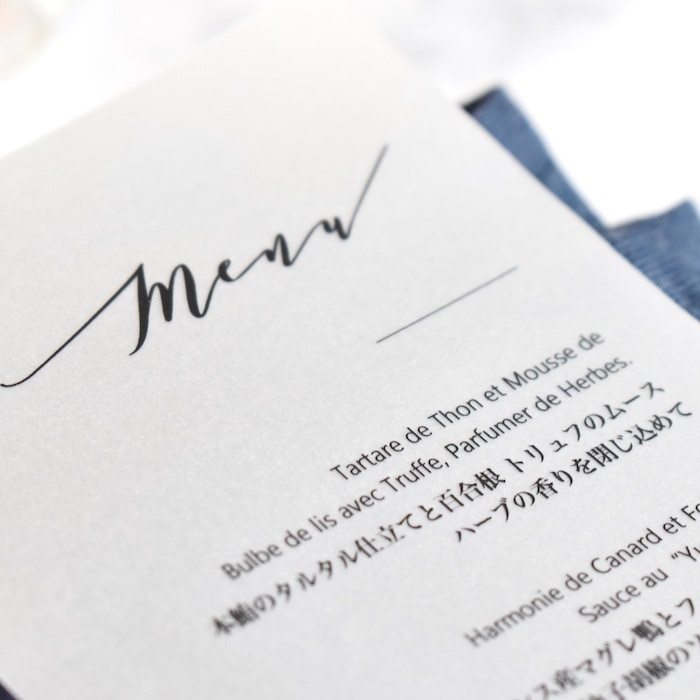 Menu
Tartare de Thon et Mousse de
Bulbe de lis avec Truffe, Parfumer de Herbes.
本鮪のタルタル仕立てと百合根 トリュフのムース
ハーブの香りを閉じ込めて
Harmonie de Canard et
Sauce au “Yu
ス産マグレ鴨とフ
胡椒のソ